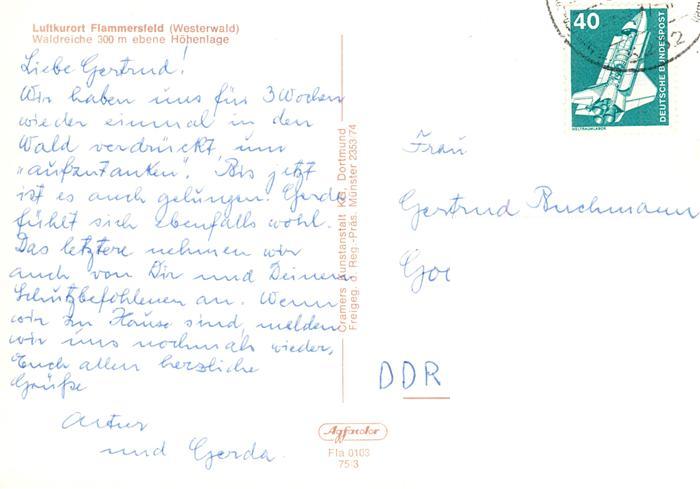 Luftkurort Flammersfeld (Westerwald)
Waldreiche 300 m ebene Höhenlage
Liebe Gertrud!
Wir haben uns für 3 Wochen
wieder einmal in den
Wald verdrückt, um
„aufzutanken". Bis jetzt
ist es auch gelungen. Gerda
fühlt sich ebenfalls wohl.
Das letztere nehmen wir
auch von Dir und Deinen
Schutzbefohlenen an. Wenn
wir zu Hause sind, melden
wir uns nochmals wieder,
Euch allen herzliche
Grüße
Artur
und Gerda.
Cramers Kunstanstalt KG, Dortmund
Freigeg. d. Reg.-Präs. Münster 2353/74
Agfacolor
Fla 0103
75/3
40
DEUTSCHE BUNDESPOST
WELTRAUMLABOR
Frau
Gertrud Buchmann
DDR